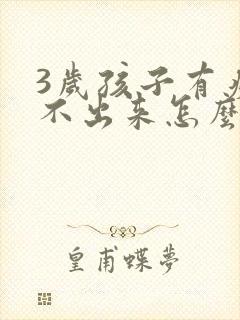 3歲孩子有
不出来怎麼
皇甫蝶夢